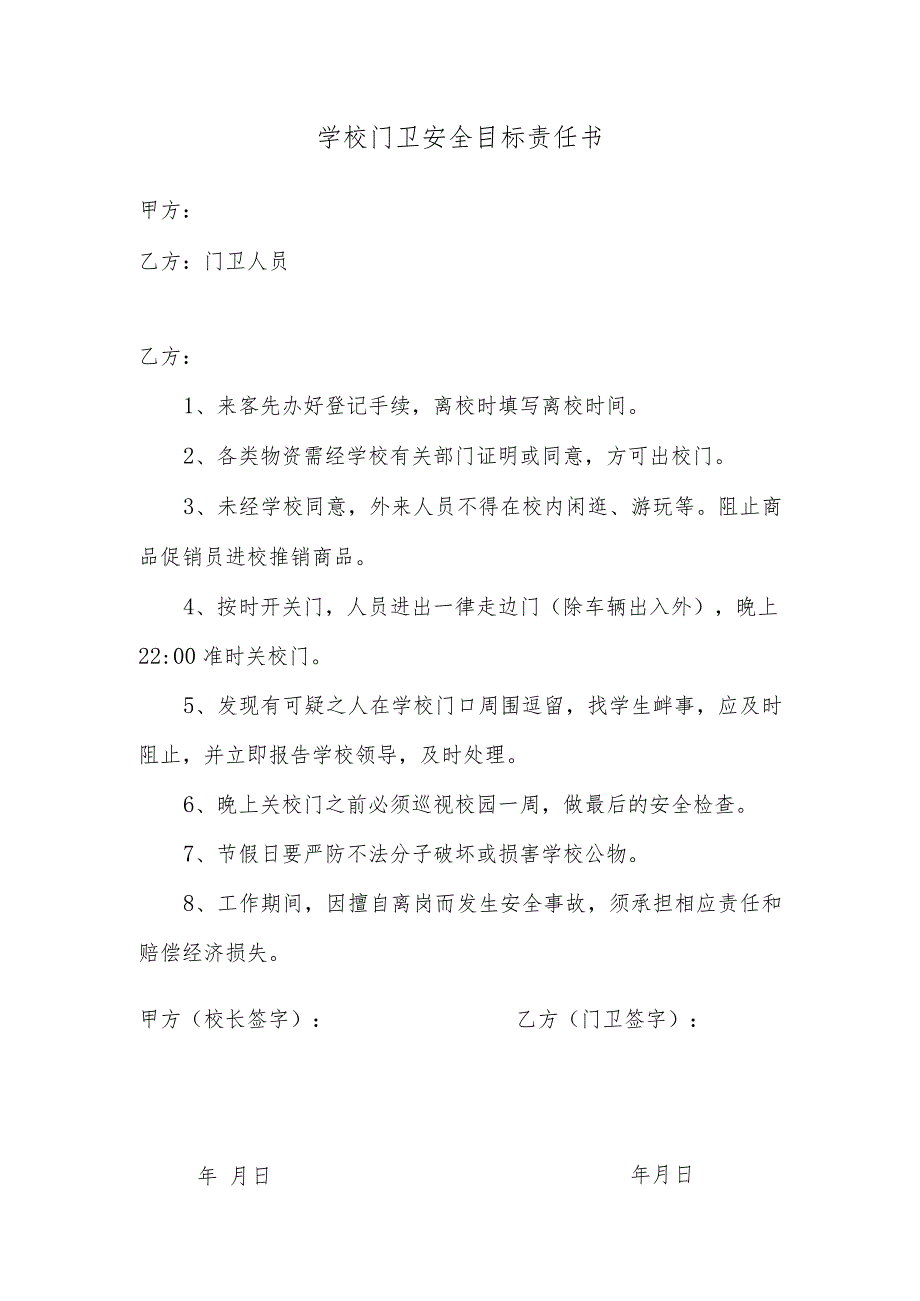 学校门卫安全目标责任书
甲方：
乙方：门卫人员
乙方：
1、来客先办好登记手续，离校时填写离校时间。
2、各类物资需经学校有关部门证明或同意，方可出校门。
3、未经学校同意，外来人员不得在校内闲逛、游玩等。阻止商
品促销员进校推销商品。
4、按时开关门，人员进出一律走边门（除车辆出入外），晚上
22:00 准时关校门。
5、发现有可疑之人在学校门口周围逗留，找学生衅事，应及时
阻止，并立即报告学校领导，及时处理。
6、晚上关校门之前必须巡视校园一周，做最后的安全检查。
7、节假日要严防不法分子破坏或损害学校公物。
8、工作期间，因擅自离岗而发生安全事故，须承担相应责任和
赔偿经济损失。
甲方（校长签字）： 乙方（门卫签字）：
年 月日 年月日